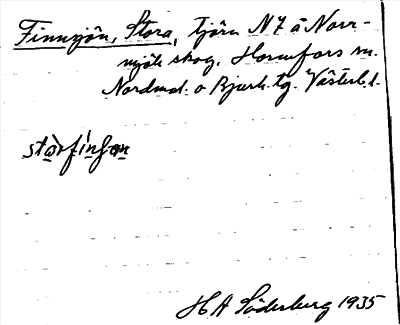 Finnsjön, Stora, tjärn N 7 å Norr-
mjöle skog. Hörnefors sn.
Nordmal. o Bjurh. tg. Västerb. l.
stòrfinfon
H A Söderberg 1935